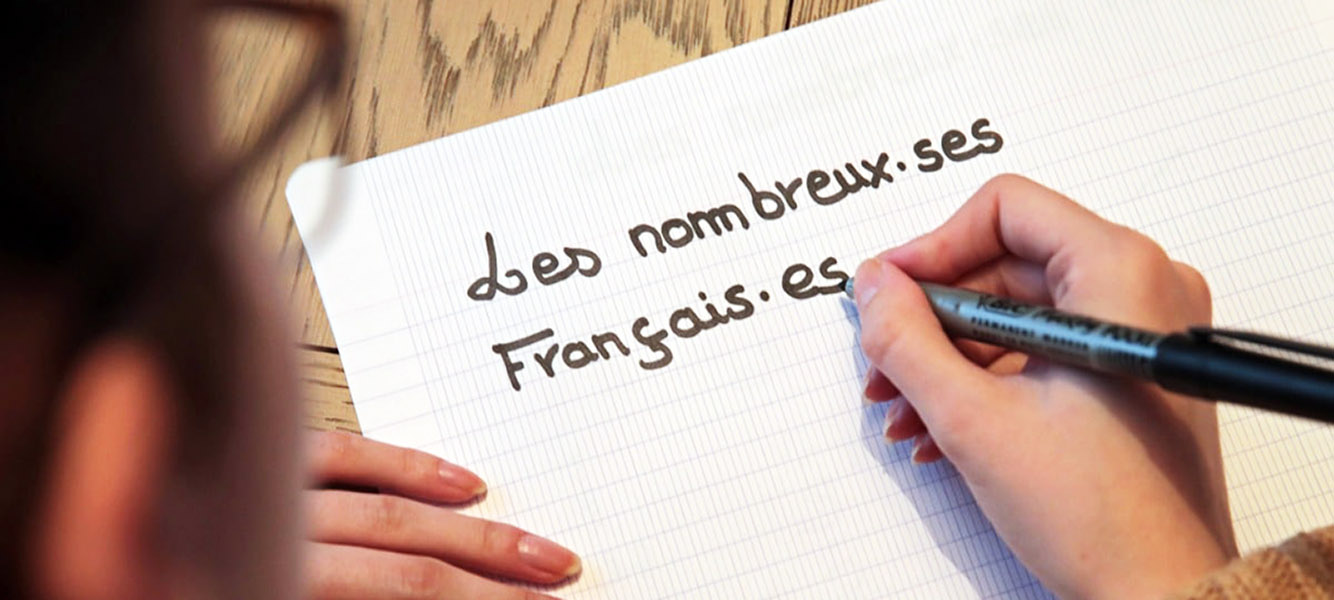 Les nombreux·ses
Français·es
PERMANENT MARKER